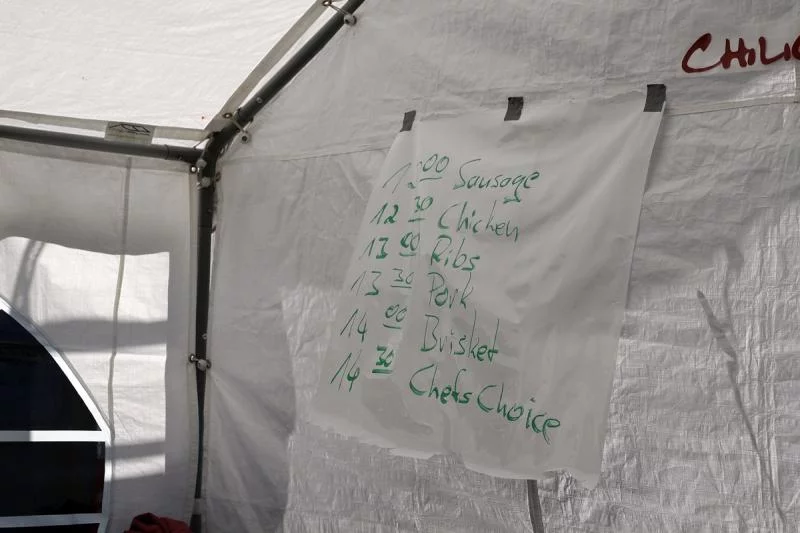 CHILI
12 00 Sausage
12 30 Chicken
13 00 Ribs
13 30 Pork
14 00 Brisket
14 30 Chefs Choice